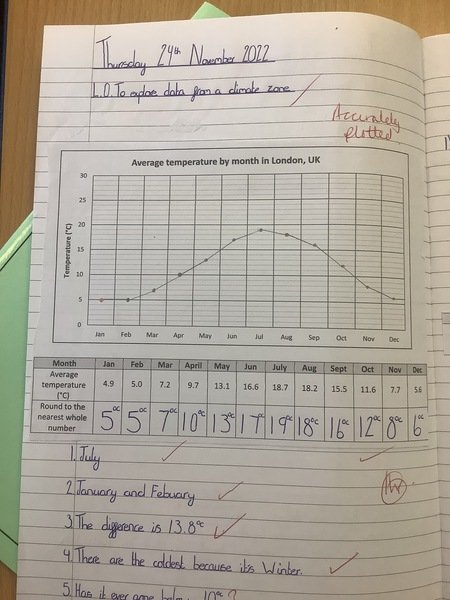 Thursday 24th November 2022
L.O. To explore data from a climate zone.
Accurately
plotted.
Average temperature by month in London, UK
Temperature (°C)
30
25
20
15
10
5
0
Jan Feb Mar Apr May Jun Jul Aug Sep Oct Nov Dec
Month Jan Feb Mar April May June July Aug Sept Oct Nov Dec
Average temperature (°C) 4.9 5.0 7.2 9.7 13.1 16.6 18.7 18.2 15.5 11.6 7.7 5.6
Round to the nearest whole number 5°C 5°C 7°C 10°C 13°C 17°C 19°C 18°C 16°C 12°C 8°C 6°C
1. July
2. January and Febuary
3. The difference is 13.8°C
4. There are the coldest because it's Winter.
5. Has it ever gone below 10°C?